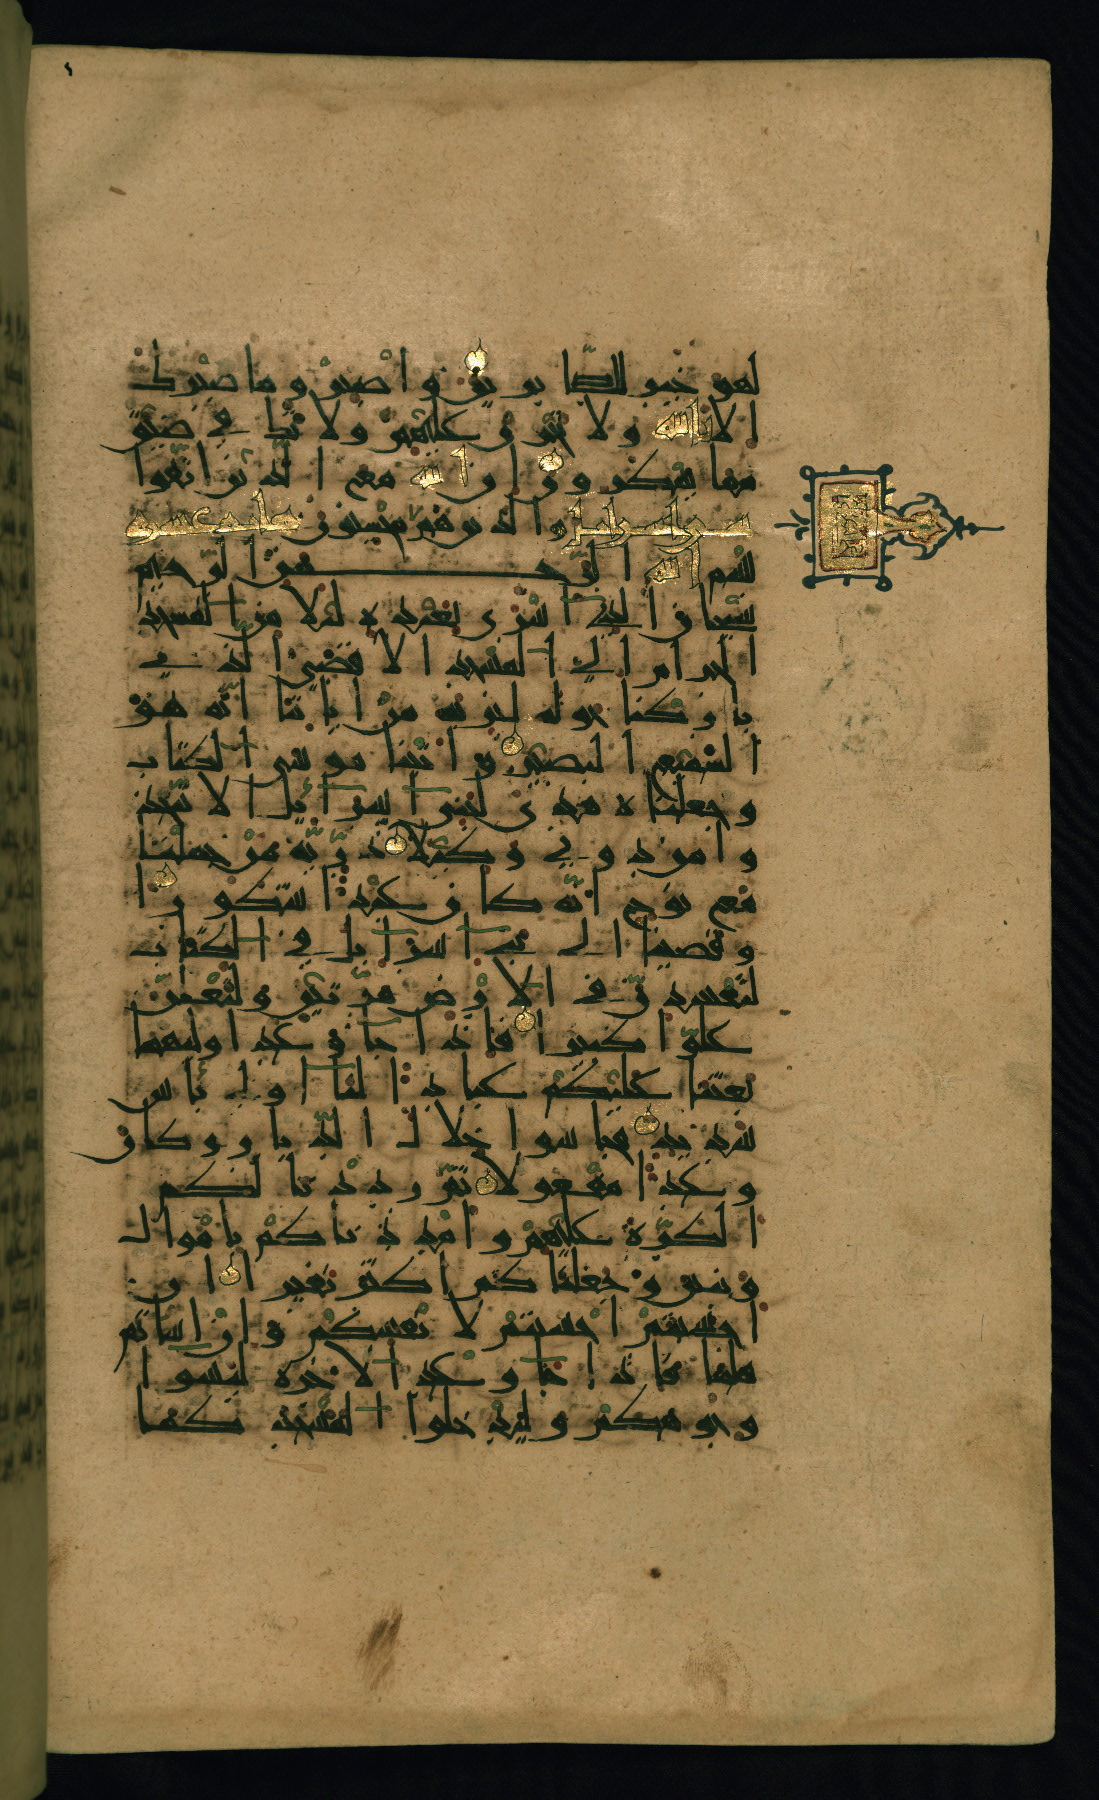 لهو خير للصابرين واصبر وما صبرك
الا بالله ولا تحزن عليهم ولا تك في ضيق
مما يمكرون ان الله مع الذين اتقوا
والذين هم محسنون
بسم الله الرحمن الرحيم
سبحان الذي اسرى بعبده ليلا من المسجد
الحرام الى المسجد الاقصى الذي
باركنا حوله لنريه من اياتنا انه هو
السميع البصير واتينا موسى الكتاب
وجعلناه هدى لبني اسرائيل الا تتخذ
وا من دوني وكيلا ذرية من حملنا
مع نوح انه كان عبدا شكورا
وقضينا الى بني اسرائيل في الكتاب
لتفسدن في الارض مرتين ولتعلن
علوا كبيرا فاذا جا وعد اوليهما
بعثنا عليكم عبادا لنا اولي باس
شديد فجاسوا خلال الديار وكان
وعدا مفعولا ثم رددنا لكم
الكرة عليهم وامددناكم باموال
وبنين وجعلناكم اكثر نفيرا ان
احسنتم احسنتم لانفسكم وان اساتم
فلها فاذا جا وعد الاخرة ليسوا
وجوهكم وليدخلوا المسجد كما